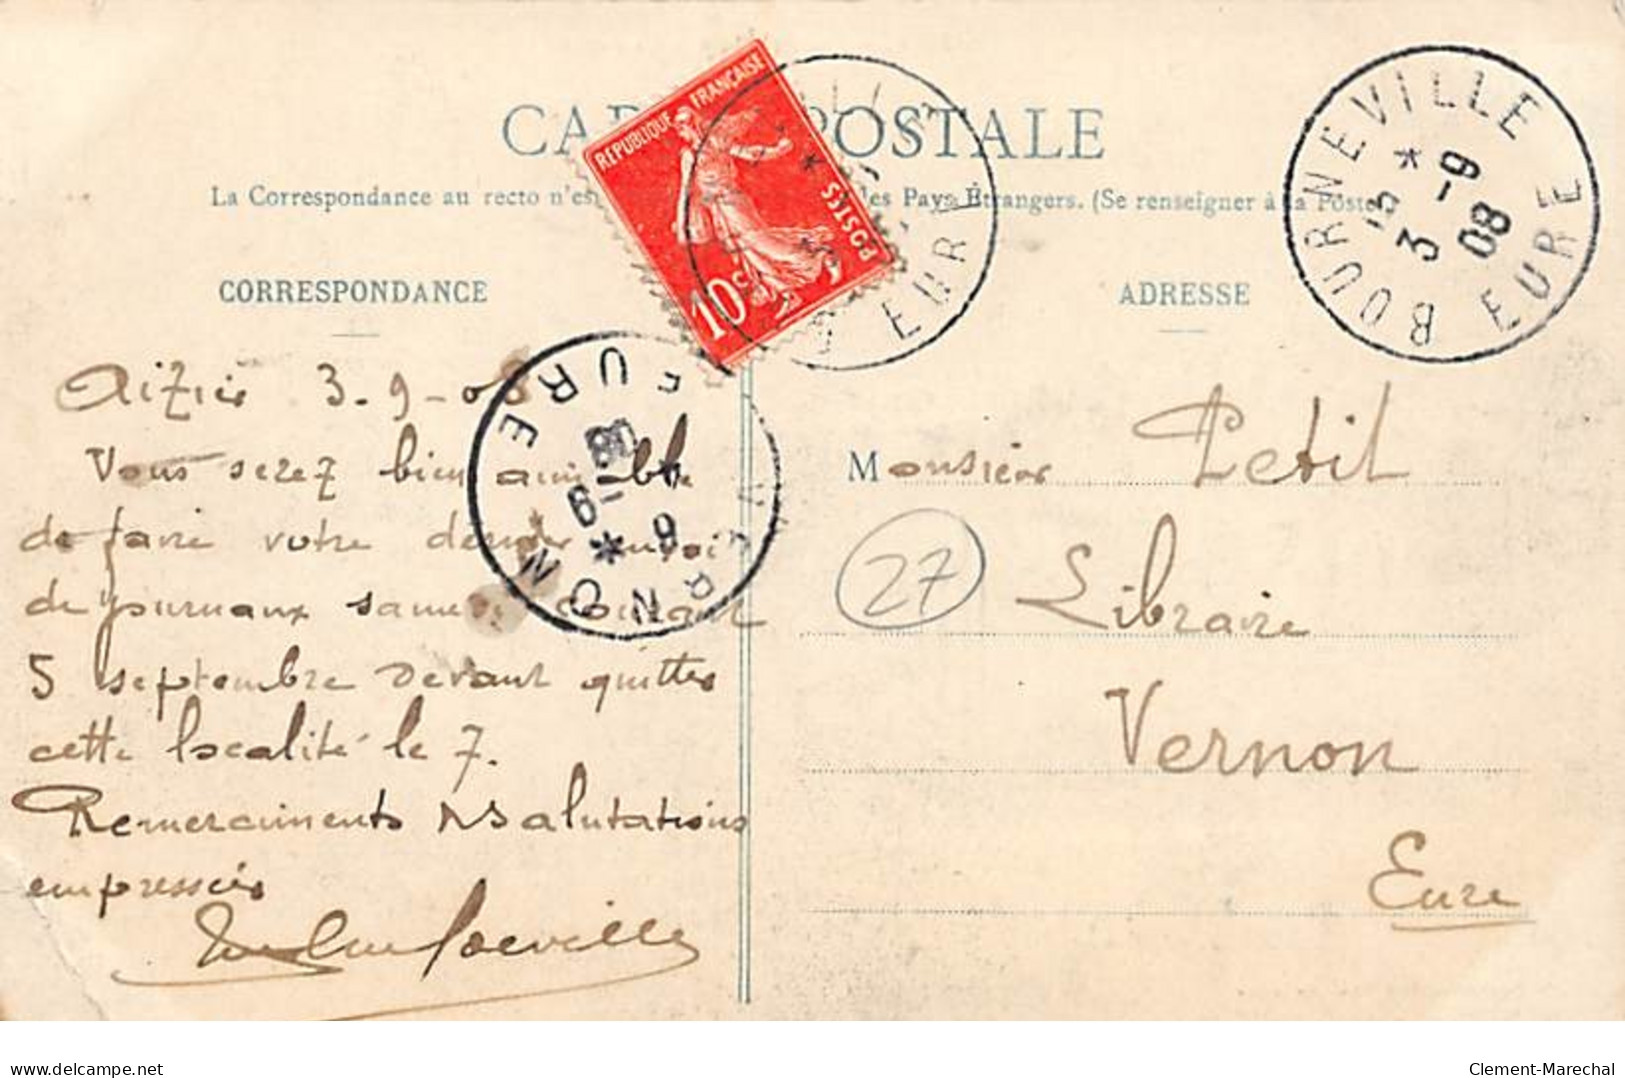 CARTE POSTALE
La Correspondance au recto n'es les Pays Étrangers. (Se renseigner à la Poste)
REPUBLIQUE FRANÇAISE
POSTES
10c
EURE
BOURNEVILLE
EURE
3-9
08
CORRESPONDANCE
ADRESSE
VERNON
EURE
9
08
Aizier 3-9-08
Vous serez bien aimable
de faire votre dernier envoi
de journaux samedi courant
5 septembre devant quitter
cette localité le 7.
Remerciments & Salutations
empressées
Monsieur Petit
27
Libraire
Vernon
Eure
delcampe.net
Clement-Marechal